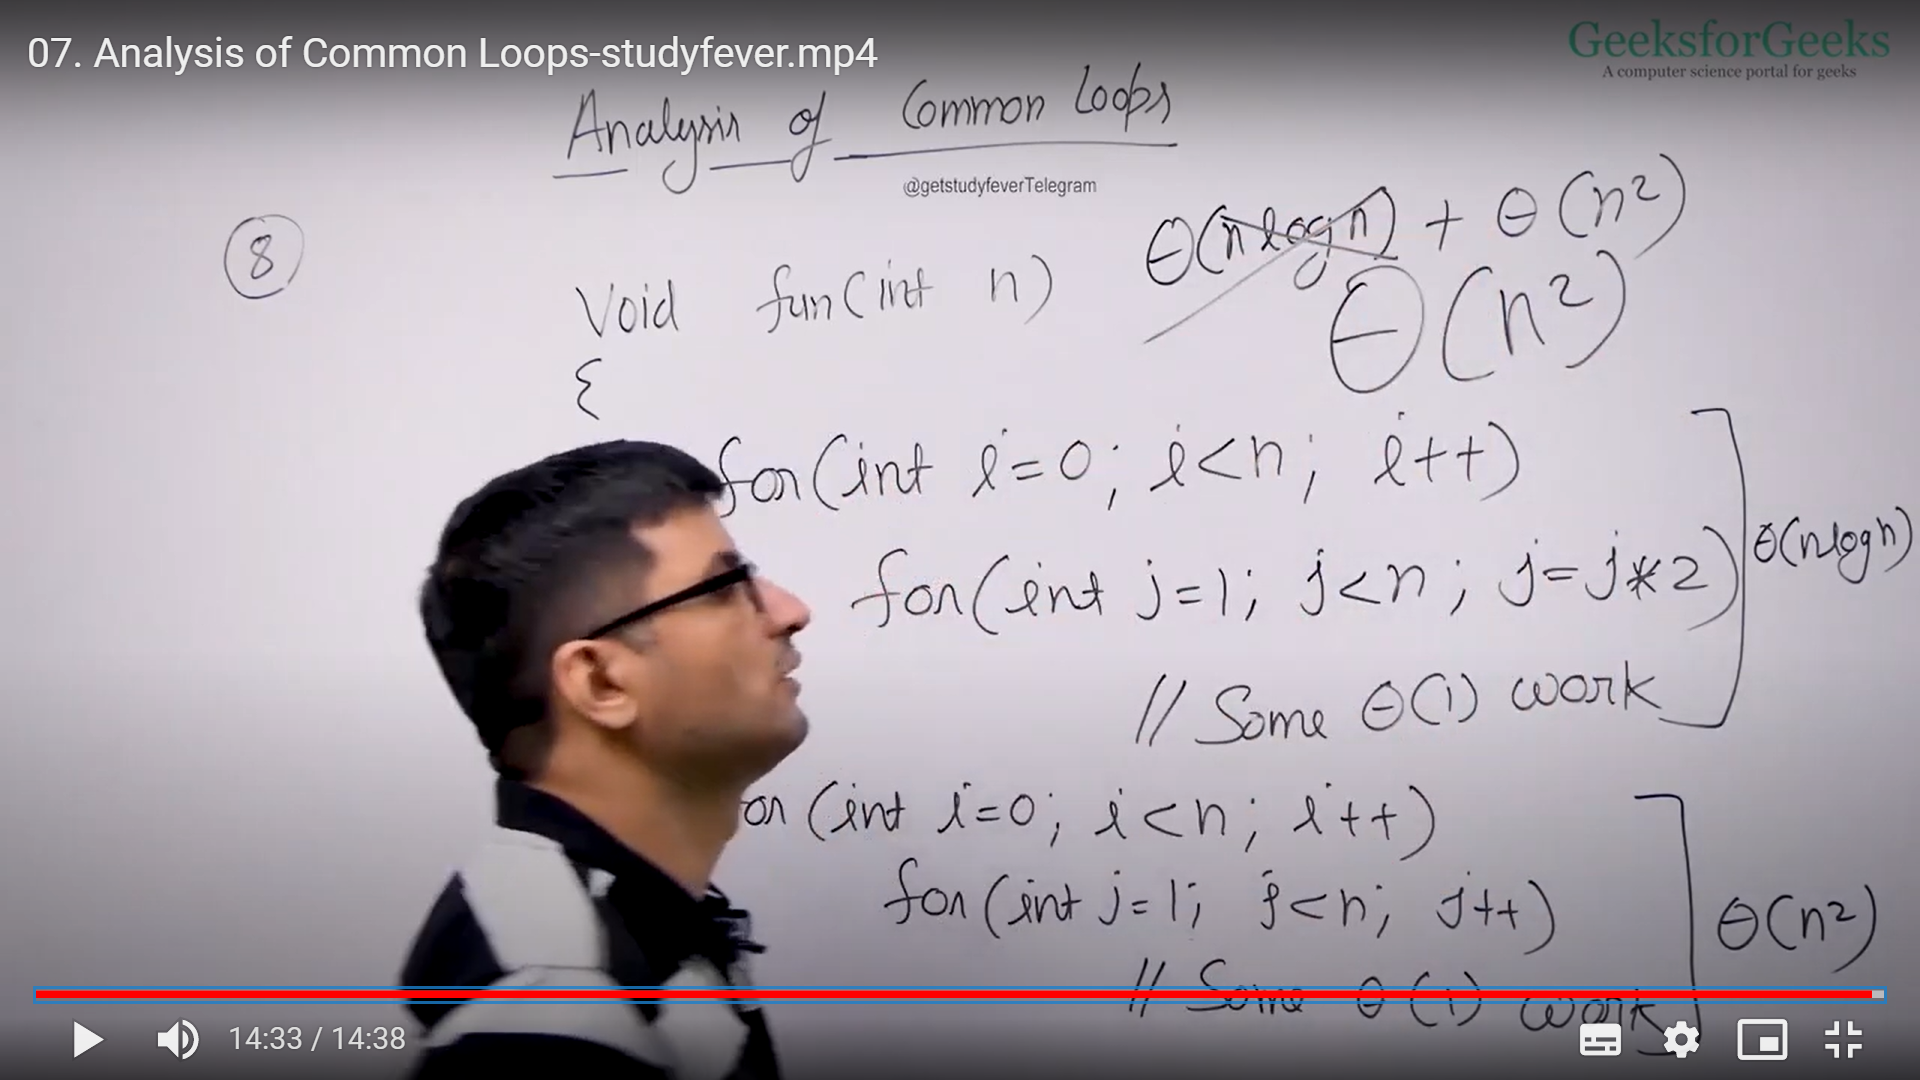 07. Analysis of Common Loops-studyfever.mp4
GeeksforGeeks
A computer science portal for geeks
Analysis of Common Loops
@getstudyfeverTelegram
8
θ(n log n) + θ(n²)
θ(n²)
Void fun(int n)
{
for(int i=0; i<n; i++)
for(int j=1; j<n; j=j*2)
θ(nlogn)
// Some θ(1) work
or (int i=0; i<n; i++)
for(int j=1; j<n; j++)
θ(n²)
// Some θ(1) work
14:33 / 14:38